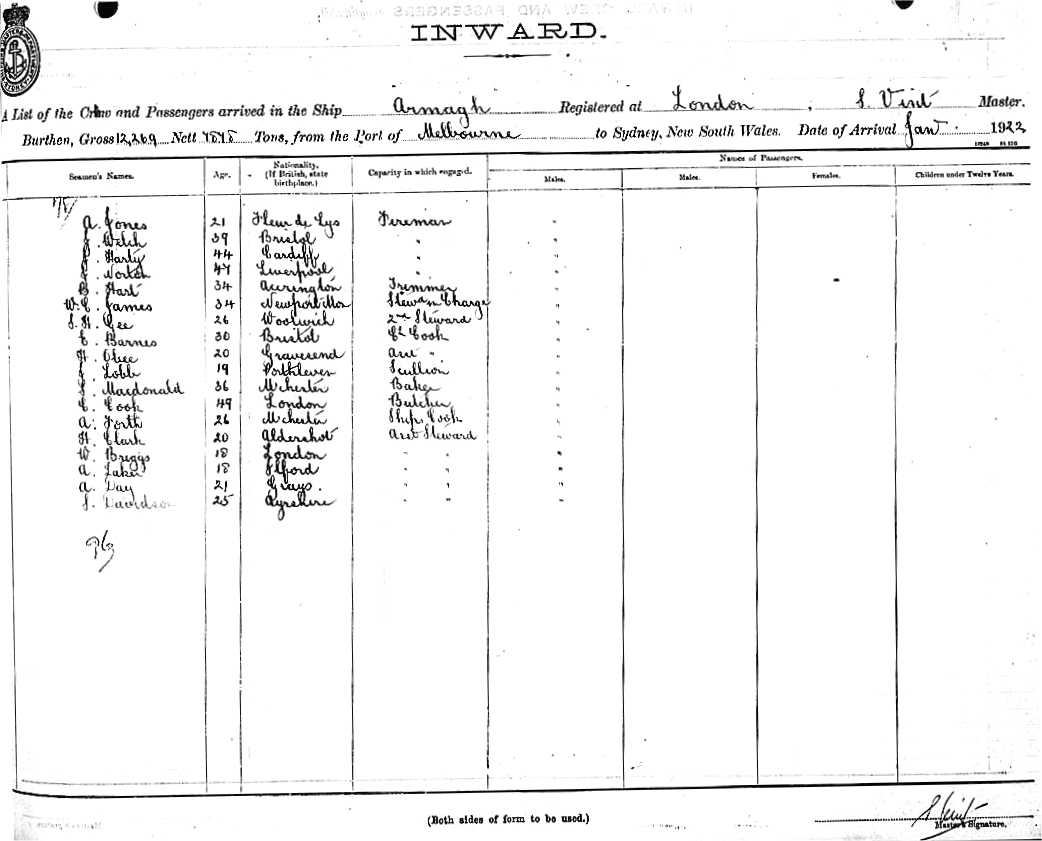 INWARD.
A List of the Crew and Passengers arrived in the Ship Armagh Registered at London, S. Vint Master.
Burthen, Gross 12,269 Nett 7878 Tons, from the Port of Melbourne to Sydney, New South Wales. Date of Arrival Jany. 1922
Names of Passengers.
Seamen's Names. Age. Nationality. (If British, state birthplace.) Capacity in which engaged. Males. Males. Females. Children under Twelve Years.
A. Jones 21 Fleur de Lys Fireman "
J. Welch 39 Bristol " "
J. Harty 44 Cardiff " "
J. Norton 47 Liverpool " "
B. Hart 34 Accrington Trimmer "
W. E. James 34 Newport Mon Stew in Charge "
S. H. Gee 26 Woolwich 2nd Steward "
E. Barnes 30 Bristol Ch Cook "
H. Obee 20 Gravesend Asst " "
J. Lobb 19 Porthleven Scullion "
S. Macdonald 36 Mchester Baker "
E. Cook 49 London Butcher "
A. Forth 26 Mchester Ships Cook "
H. Clark 20 Aldershot Asst Steward "
W. Briggs 18 London " " "
A. Laker 18 Ilford " " "
A. Day 21 Grays. " " "
S. Davidson 25 Ayrshire " " "
(Both sides of form to be used.)
S. Vint
Master's Signature.